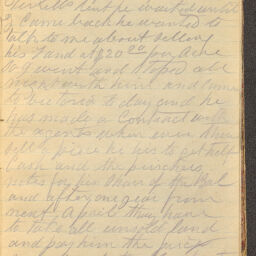 he waited until
I came back he wanted to
talk to me about selling
his land at $20 00 per Acre
So I went and stoped all
night with him and came
to Victoria to day and he
has made a Contract with
the agents when ever they
sell a piece he is to get half
Cash and the purchers
notes for per of the Bal
and after one year from
next April they have
to take all unsold land
and pay him the